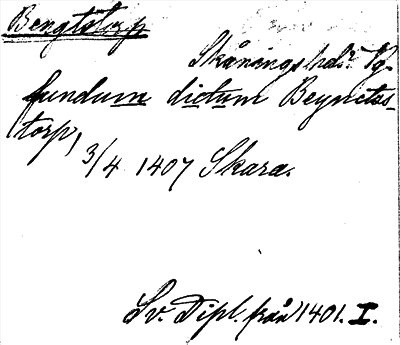 Bengtstorp
Skånings hd. Vg.
fundum dictum Beynctas-
torp, 3/4 1407 Skara.
Sv. Dipl. från 1401. I.